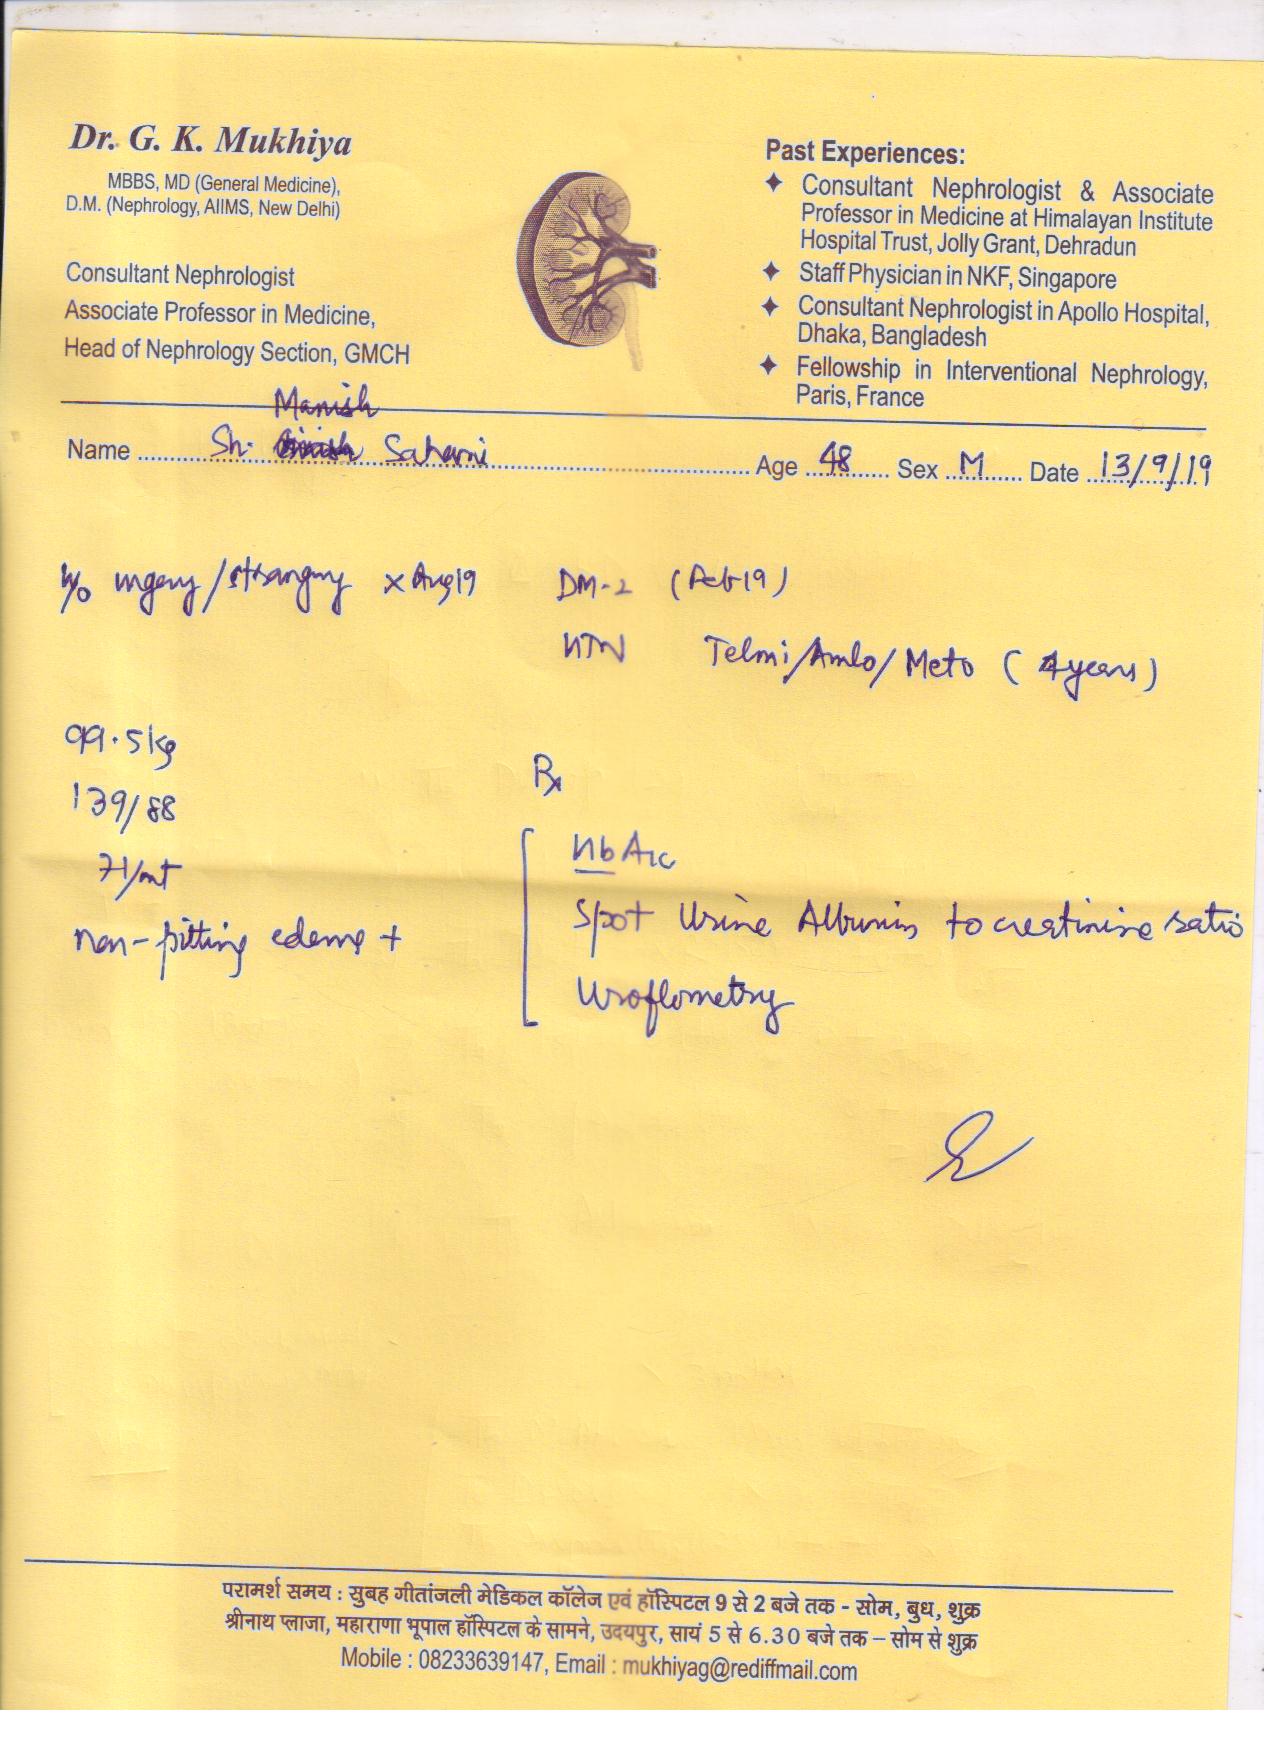 Dr. G. K. Mukhiya
MBBS, MD (General Medicine),
D.M. (Nephrology, AIIMS, New Delhi)
Consultant Nephrologist
Associate Professor in Medicine,
Head of Nephrology Section, GMCH
Past Experiences:
✦ Consultant Nephrologist & Associate
Professor in Medicine at Himalayan Institute
Hospital Trust, Jolly Grant, Dehradun
✦ Staff Physician in NKF, Singapore
✦ Consultant Nephrologist in Apollo Hospital,
Dhaka, Bangladesh
✦ Fellowship in Interventional Nephrology,
Paris, France
Manish
Name Sh. Saharni Age 48 Sex M Date 13/9/19
urgency/strangury x Aug19 DM-2 (Feb 19)
HTN Telmi/Amlo/Meto (4 years)
99.5 kg
139/88
71/mt
non-pitting edema +
Rx
HbA1c
Spot Urine Albumin to creatinine ratio
Uroflometry
परामर्श समय : सुबह गीतांजली मेडिकल कॉलेज एवं हॉस्पिटल 9 से 2 बजे तक - सोम, बुध, शुक्र
श्रीनाथ प्लाजा, महाराणा भूपाल हॉस्पिटल के सामने, उदयपुर, सायं 5 से 6.30 बजे तक – सोम से शुक्र
Mobile : 08233639147, Email : mukhiyag@rediffmail.com